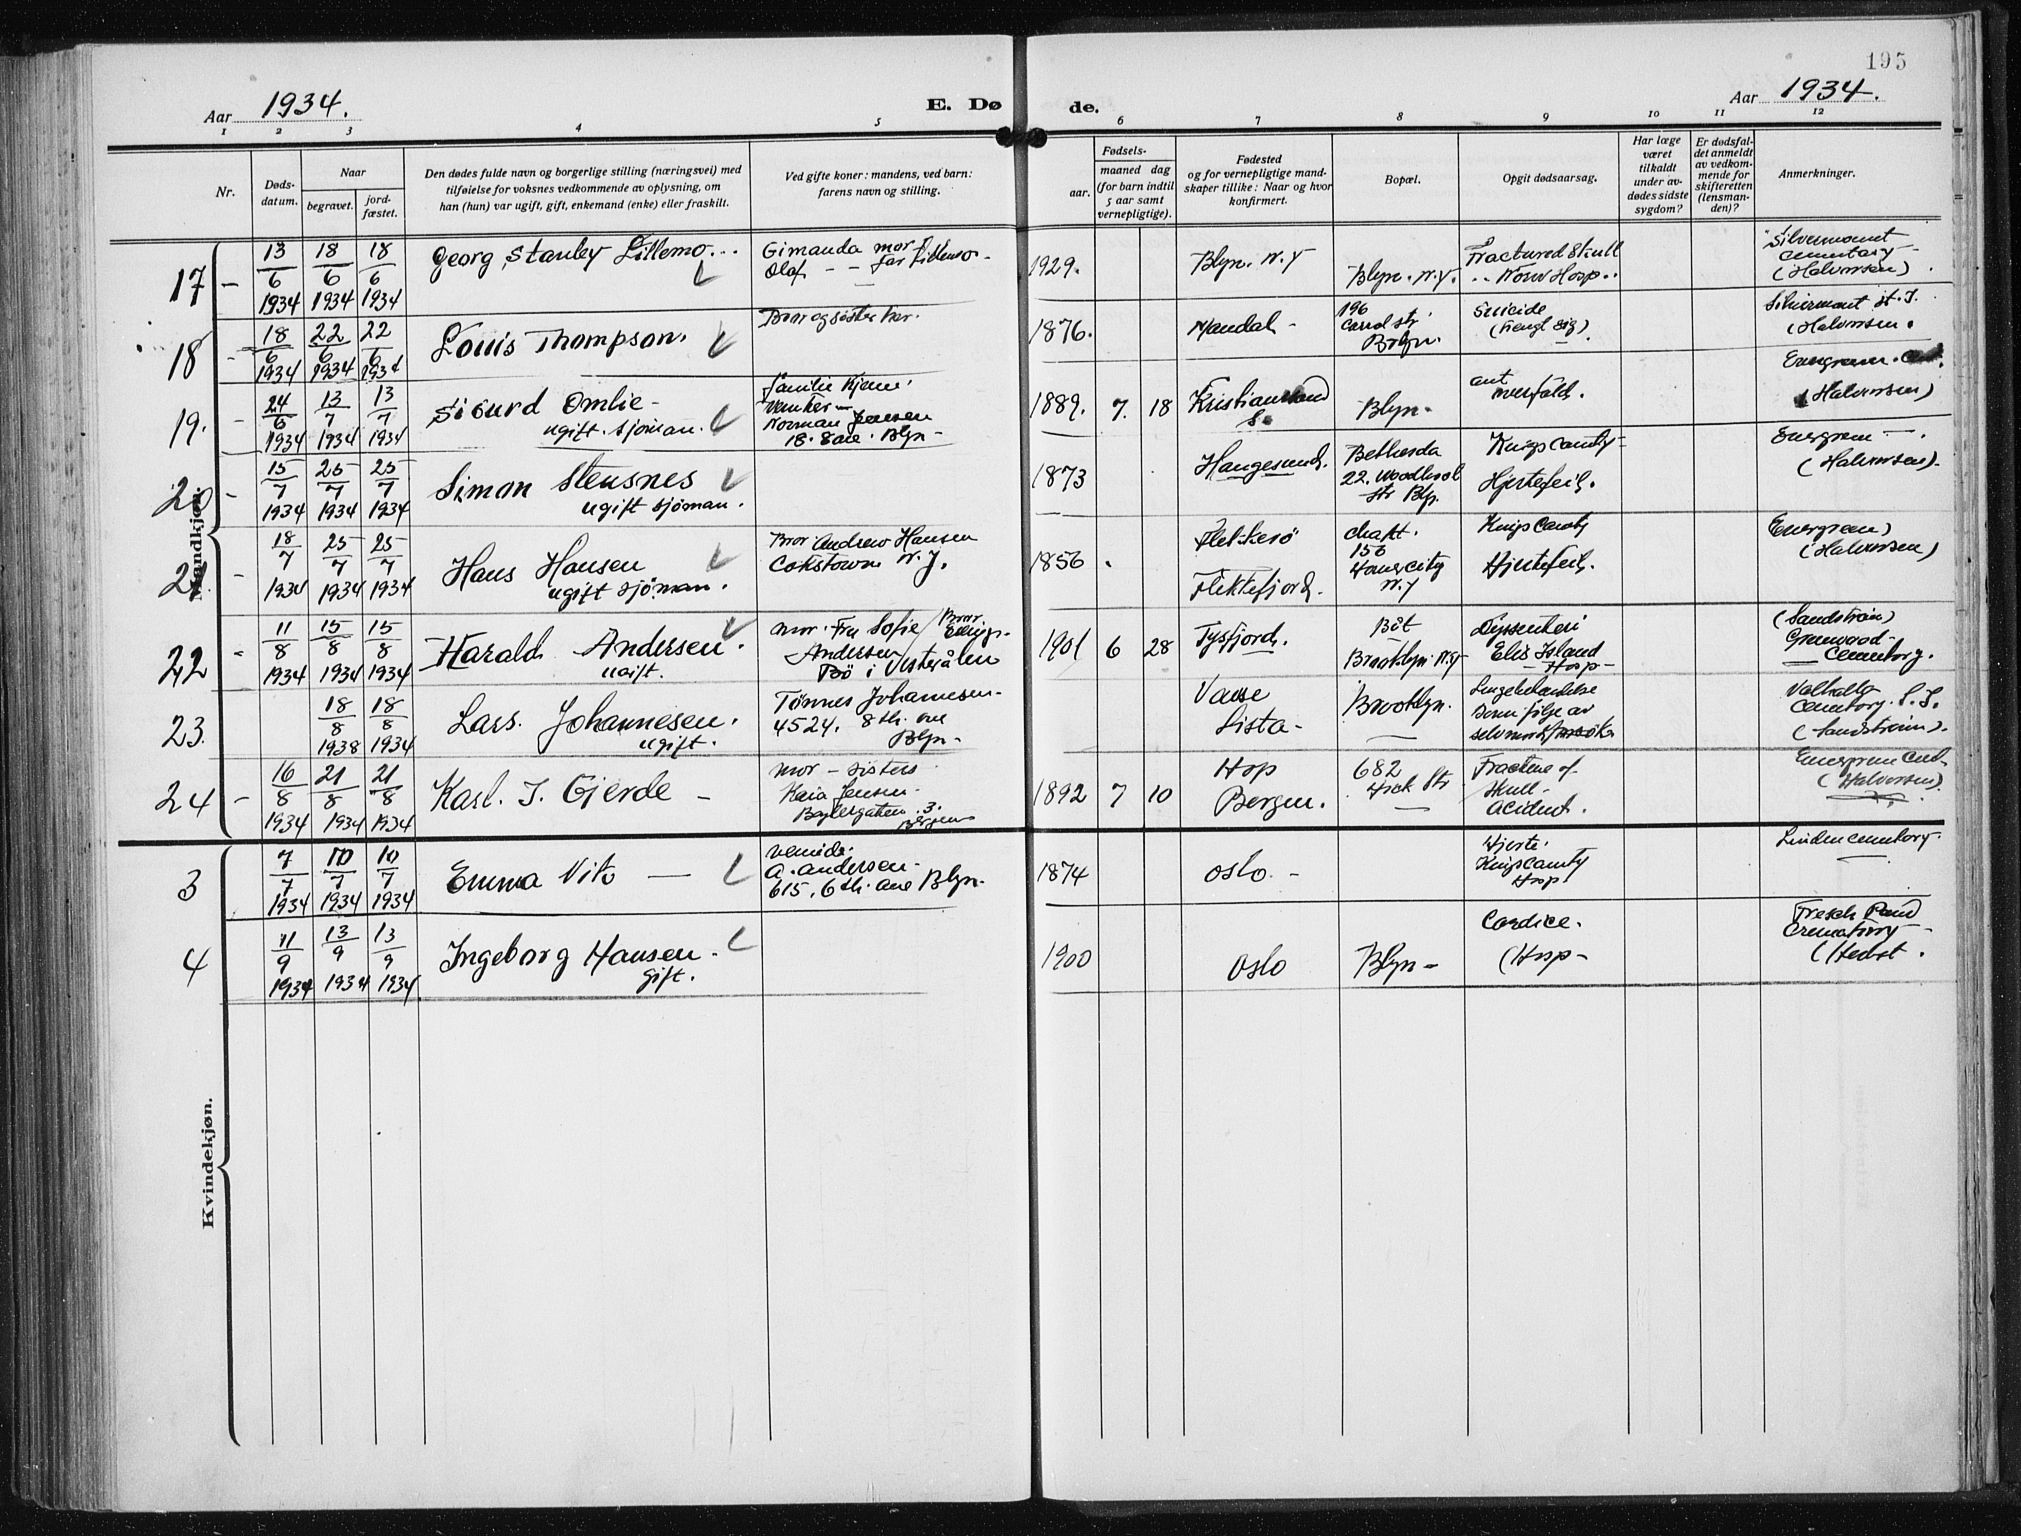 195
Aar 1934.
E. Døde.
Aar 1934.
1 2 3 4 5 6 7 8 9 10 11 12
Nr.
Døds-
datum.
Naar
begravet.
jord-
fæstet.
Den dødes fulde navn og borgerlige stilling (næringsvei) med
tilføielse for voksnes vedkommende av oplysning, om
han (hun) var ugift, gift, enkemand (enke) eller fraskilt.
Ved gifte koner: mandens, ved barn:
farens navn og stilling.
Fødsels-
aar.
maaned dag
(for barn indtil
5 aar samt
vernepligtige).
Fødested
og for vernepligtige mand-
skaper tillike: Naar og hvor
konfirmert.
Bopæl.
Opgit dødsaarsag.
Har læge
været
tilkaldt
under av-
dødes sidste
sygdom?
Er dødsfal-
det anmeldt
av vedkom-
mende for
skifteretten
(lensman-
den)?
Anmerkninger.
Mandkjøn.
17 – 13/6 1934 18/6 1934 18/6 1934
Georg Stanley Lillemo
Gimanda mor
Olaf – – far Lillemo -
1929.
Blyn. N.Y
Blyn. N.Y.
Fractured Skull
Norw Hosp.
Silvermount
cemetary
(Halvorsen)
18 – 18/6 1934 22/6 1934 22/6 1934
Louis Thompson.
Bror og søster her.
1876.
Mandal -
196
Carrol str.
Brlyn.
Suicide
(hengt sig).
Silvermount st. I.
(Halvorsen.
19. – 24/6 1934 13/7 1934 13/7 1934
Sigurd Omlie -
ugift. sjöman.
familie Kjenni
Norman Jensen
18. 8 ave. Blyn -
1889. 7. 18
Kristiansand
S.
Blyn.
aut
overfald.
Evergreen
(Halvorsen)
20 – 15/7 1934 25/7 1934 25/7 1934
Simon Stensnes
ugift sjöman.
1873
Haugesund.
Bethesda
22. Woodhool
str Blp.
Kings County
Hjertefeil.
Evergreen -
(Halvorsen).
21 – 18/7 1934 25/7 1934 25/7 1934
Hans Hansen
ugift sjöman.
Bror Andrew Hansen
Cokstown N. J.
1856
Flekkerö
Flekkefjord.
156
N.Y
Kings County
Hjertefeil.
Evergreen)
(Halvorsen)
22 – 11/8 1934 15/8 1934 15/8 1934
Harald Andersen.
ugift.
mor. Fru Sofie / Bror
Andersen
Bö i Vesterålen
1901 6 28
Tysfjord.
Båt
Brooklyn. N.Y
Dyssenteri
Elis Island
- Hosp -
(Sandström)
Greenwood
Cemetory.
23. 18/8 1938 18/8 1934
Lars. Johannesen.
ugift.
Tönnes Johannesen.
4524. 8th. ave
Blyn -
Vanse
Lista -
Brooklyn.
Lungebetendelse
som følge av
selvmordsforsök.
Valhalla
Cemetory. S. I.
(Sandström).
24 – 16/8 1934 21/8 1934 21/8 1934
Karl. J. Gjerde –
mor – sisters
Kaia Jensen -
3.
Bergen
1892 7 10
Hop
Bergen.
682
Hick Str
Fracture of
Skull -
Acident.
Evergreen Cem.
(Halvorsen)
Kvindekjøn.
3 7/7 1934 10/7 1934 10/7 1934
Emma Vito —
Veninde.
A. Andersen -
615. 6th. ave Blyn.
1874
Oslo. -
Hjerte.
Kings County
Hosp
Linden cemetory.
4 11/9 1934 13/9 1934 13/9 1934
Ingeborg Hansen.
gift.
1900
Oslo
Blyn -
Cardice.
(Hosp -
Fresch Pond
Crematorry -